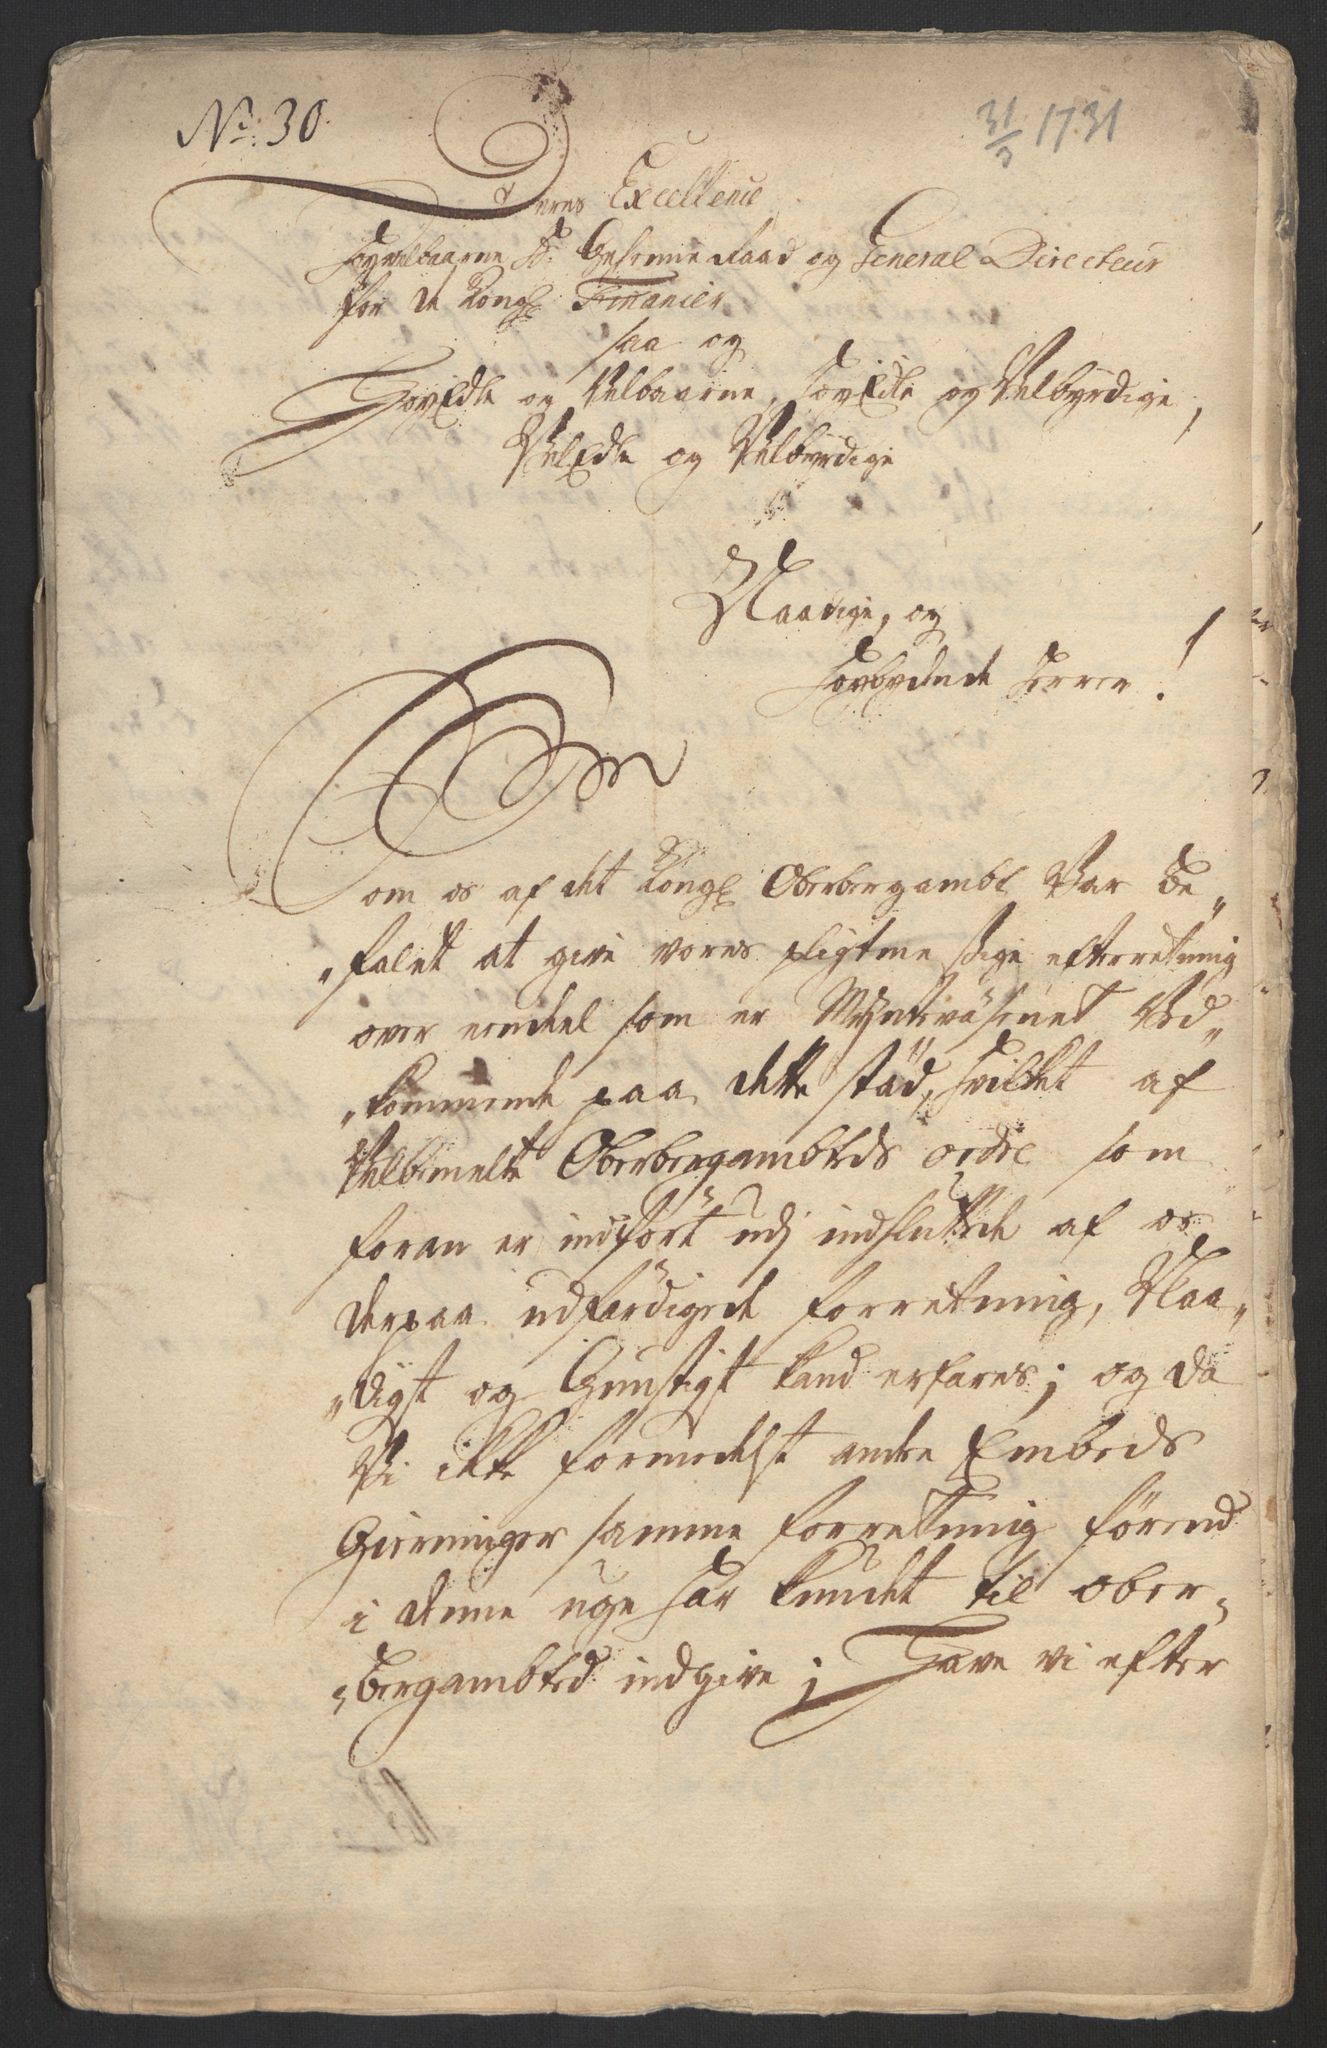 No: 30.
31/3 1731
Deres Excellence
Høyvelbaarne Hr. Geheime Raad og General Directeur
for de Kongl. Financier
saa og
HøyEdle og Velbaarne, HøyEdle og Velbyrdige,
VelEdle og Velbyrdige
Naadige, og
Høybydende Herrer!
Som os af det Kongl. Oberbergambt Var be„
„falet at give vores pligtmessige efterretning
over eendeel som er Myntevæsenet Ved„
„kommende paa dette stæd, hvilket af
Velbemelte Oberbergambtds ordre som
foran er indført udj indsluttede af os
derpaa udfærdigede forretning, Naa„
„digst og Gunstigst kand erfares; og da
Vi ikke formedelst andre Embeds
Gierninger samme forretning førend
i denne uge har kundet til ober„
„bergambted indgive; Have vi efter